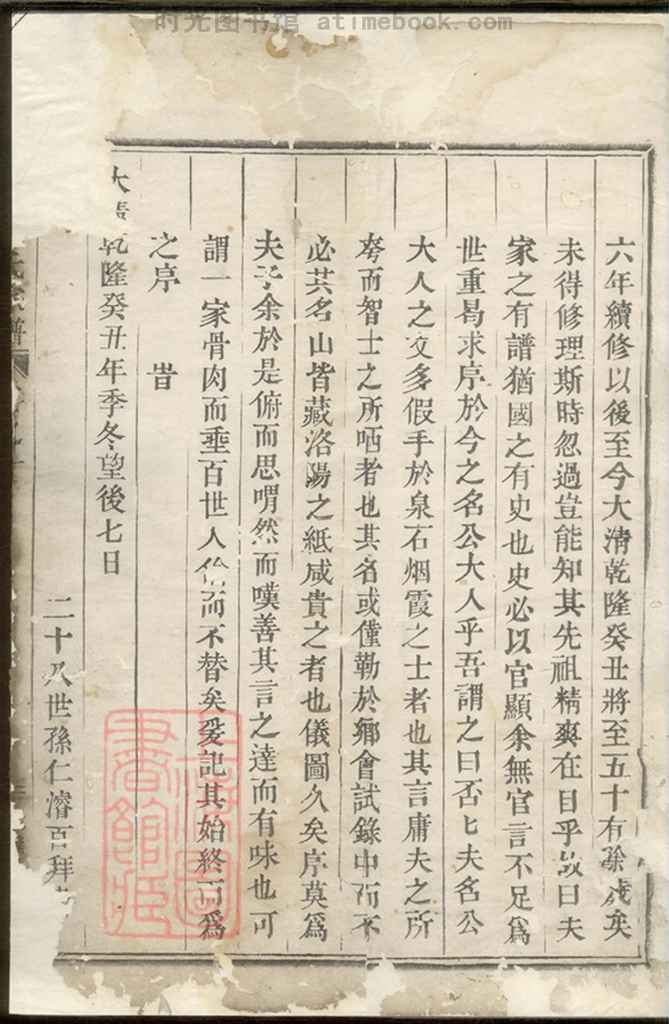 时光图书馆 atimebook.com
六年續修以後至今大清乾隆癸丑將至五十有餘歲矣
未得修理斯時忽過豈能知其先祖精爽在目乎故曰夫
家之有譜猶國之有史也史必以官顯余無官言不足爲
世重曷求序於今之名公大人乎吾謂之曰否匕夫名公
大人之文多假手於泉石烟霞之士者也其言庸夫之所
夸而智士之所哂者也其名或僅勒於鄉會試錄中而不
必其名山皆藏洛陽之紙咸貴之者也儀圖久矣序莫爲
夫子余於是俯而思喟然而嘆善其言之達而有味也可
謂一家骨肉而垂百世人倫而不替矣爰記其始終而爲
之序 旹
大清乾隆癸丑年季冬望後七日
二十八世孫仁濬百拜
氏宗譜
書館
圖